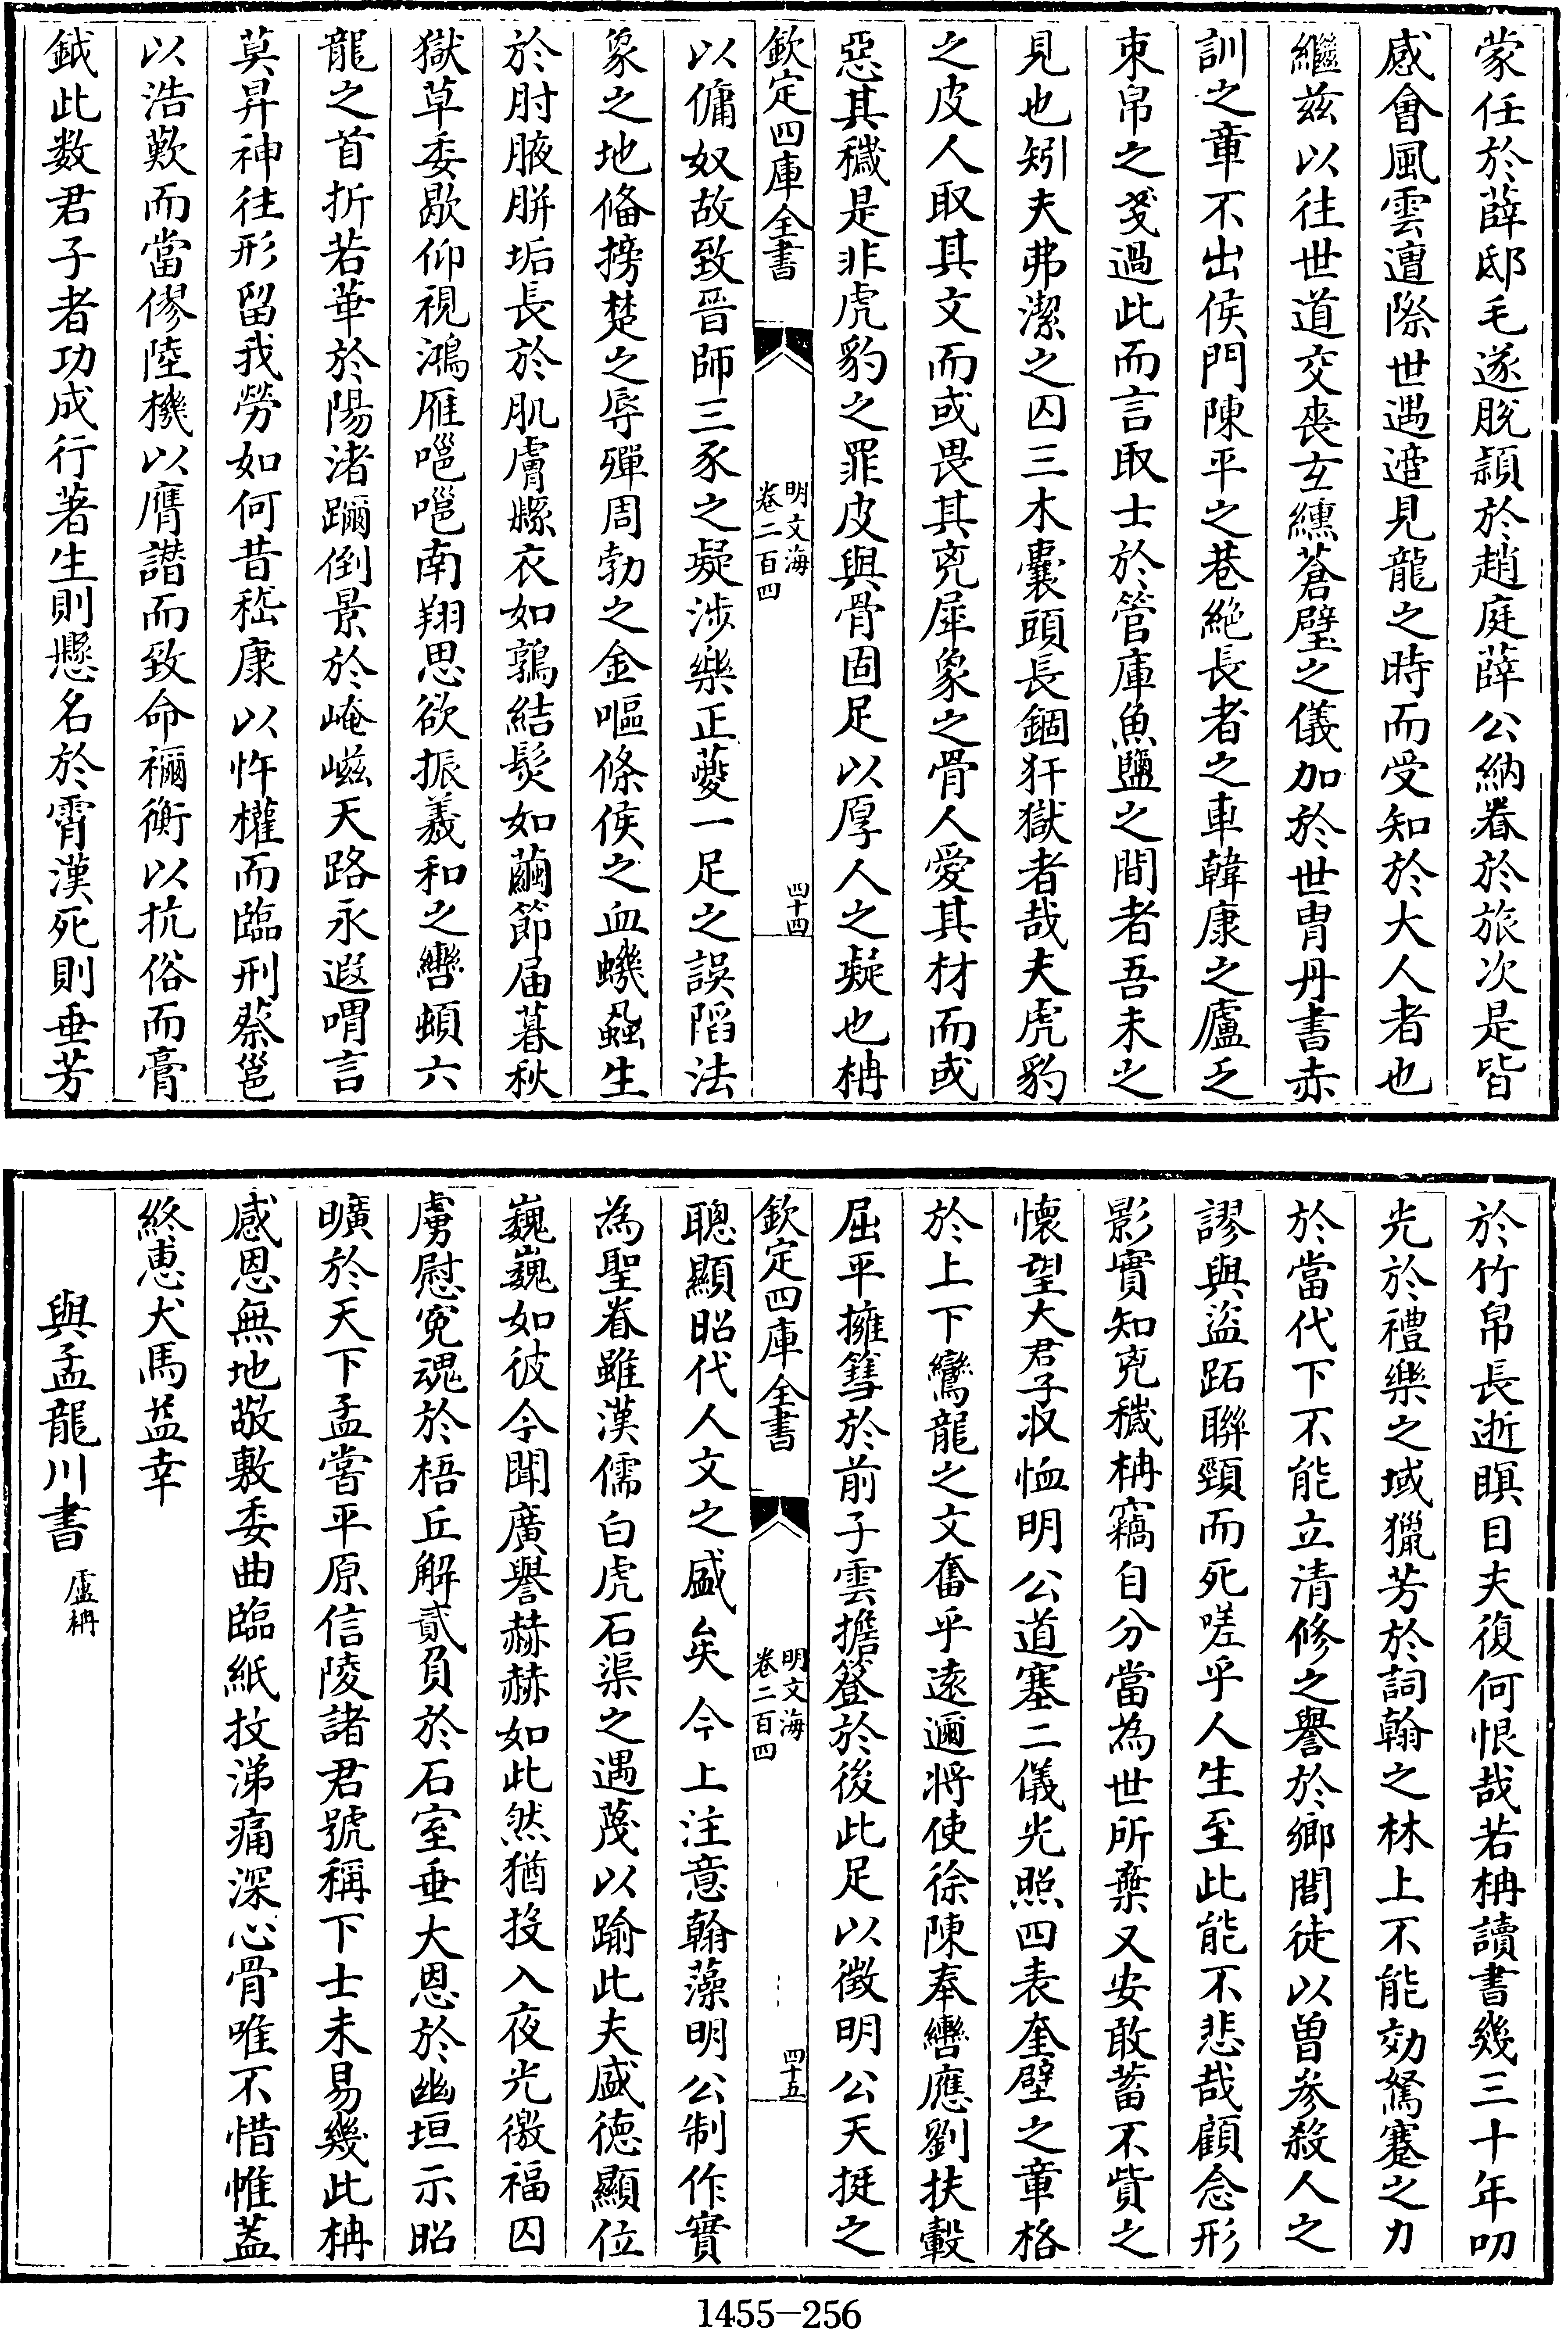 蒙任於薛邸毛遂脫潁於趙庭薛公納眷於旅次是皆
感會風雲遭際世遇遊見龍之時而受知於大人者也
繼茲以往世道交喪玄纁蒼璧之儀加於世胄丹書赤
訓之章不出侯門陳平之巷絶長者之車韓康之廬乏
束帛之戔過此而言取士於管庫魚鹽之間者吾未之
見也矧夫弗潔之囚三木囊頭長錮犴獄者哉夫虎豹
之皮人取其文而或畏其兇犀象之骨人愛其材而或
惡其穢是非虎豹之罪皮與骨固足以厚人之疑也柟
欽定四庫全書
明文海
卷二百四
四十四
以傭奴故致晉師三豕之疑涉樂正夔一足之誤䧟法
象之地俻搒楚之辱殫周勃之金嘔條侯之血蟣蝨生
於肘腋胼垢長於肌膚縣衣如鶉結髮如繭節届暮秋
獄草委歇仰視鴻雁嗈嗈南翔思欲振羲和之轡頓六
龍之首折若華於陽渚躡倒景於崦嵫天路永遐喟言
莫昇神往形留我勞如何昔嵇康以忤權而臨刑蔡邕
以浩歎而當僇陸機以膺譖而致命禰衡以抗俗而膏
鉞此数君子者功成行著生則懸名於霄漢死則垂芳
於竹帛長逝瞑目夫復何恨哉若柟讀書幾三十年叨
光於禮樂之域獵芳於詞翰之林上不能効駑蹇之力
於當代下不能立清修之譽於鄉閭徒以曾參殺人之
謬與盜跖聯頸而死嗟乎人生至此能不悲哉顧念形
影實知兇穢柟竊自分當為世所棄又安敢蓄不貲之
懷望大君子收恤明公道塞二儀光照四表奎壁之章格
於上下鸞龍之文奮乎遠邇將使徐陳奉轡應劉扶轂
屈平擁篲於前子雲擔簦於後此足以徵明公天挺之
欽定四庫全書
明文海
卷二百四
四十五
聰顯昭代人文之盛矣今上注意翰藻明公制作實
為聖眷雖漢儒白虎石渠之遇蔑以踰此夫盛德顯位
巍巍如彼令聞廣譽赫赫如此然猶投入夜光徼福囚
虜慰寃魂於梧丘解貳負於石室垂大恩於幽垣示昭
曠於天下孟嘗平原信陵諸君號稱下士未易幾此柟
感恩無地敬敷委曲臨紙抆涕痛深心骨唯不惜帷蓋
終惠犬馬益幸
與孟龍川書 盧柟
1455-256